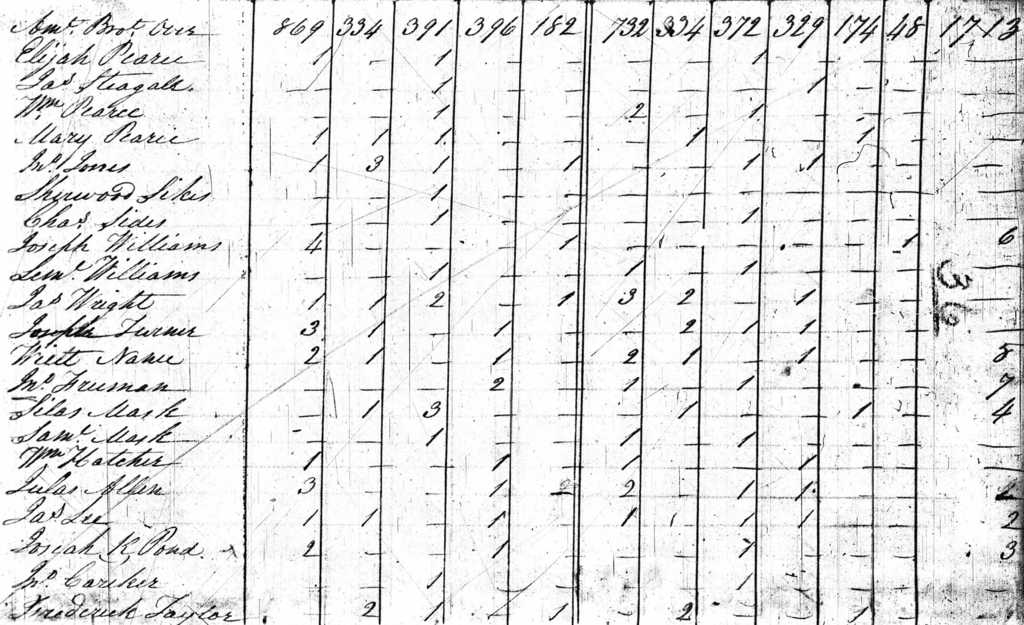 Amt. Brot. Over 869 334 391 396 182 732 334 372 329 174 48 1713
Elijah Pearce 1 – 1 – – – – 1 – – – –
Jas. Steagall – – 1 – – – – – 1 – – –
Wm. Pearce – – 1 – – 2 – 1 – – – –
Mary Pearce 1 1 1 – – – 1 – – 1 – –
Jno. Jones 1 3 1 – 1 – – 1 1 – – –
Sherwood Sikes – – 1 – – – – – – – – –
Chas. Sides – – 1 – – – – 1 – – – –
Joseph Williams 4 – – – 1 – – – – – 1 6
Leml. Williams – – 1 – – 1 – 1 – – – –
Jas. Wright 1 1 2 – 1 3 2 – 1 – – –
36
Joseph Turner 3 1 – 1 – – 2 1 1 – – 1
Name 2 1 – 1 – 2 1 – 1 – – 8
Jno. Freeman – – – 2 – 1 – 1 – – – 7
Silas Mask – 1 3 – – – 1 – – 1 – 4
Saml. Mask – – 1 – – 1 – 1 – – – –
Wm. Hatcher 1 – – 1 – 1 – – 1 – – –
Allen 3 – – 1 2 2 – 1 1 – –
Jas. Lee 1 1 – 1 – 1 – 1 1 – – 2
Josiah K. Pond 2 – – 1 – – – – – – 3
Jno. Cariker – – 1 – – – – 1 – – – –
Frederick Taylor – 2 1 – 1 – 2 – – 1 – –